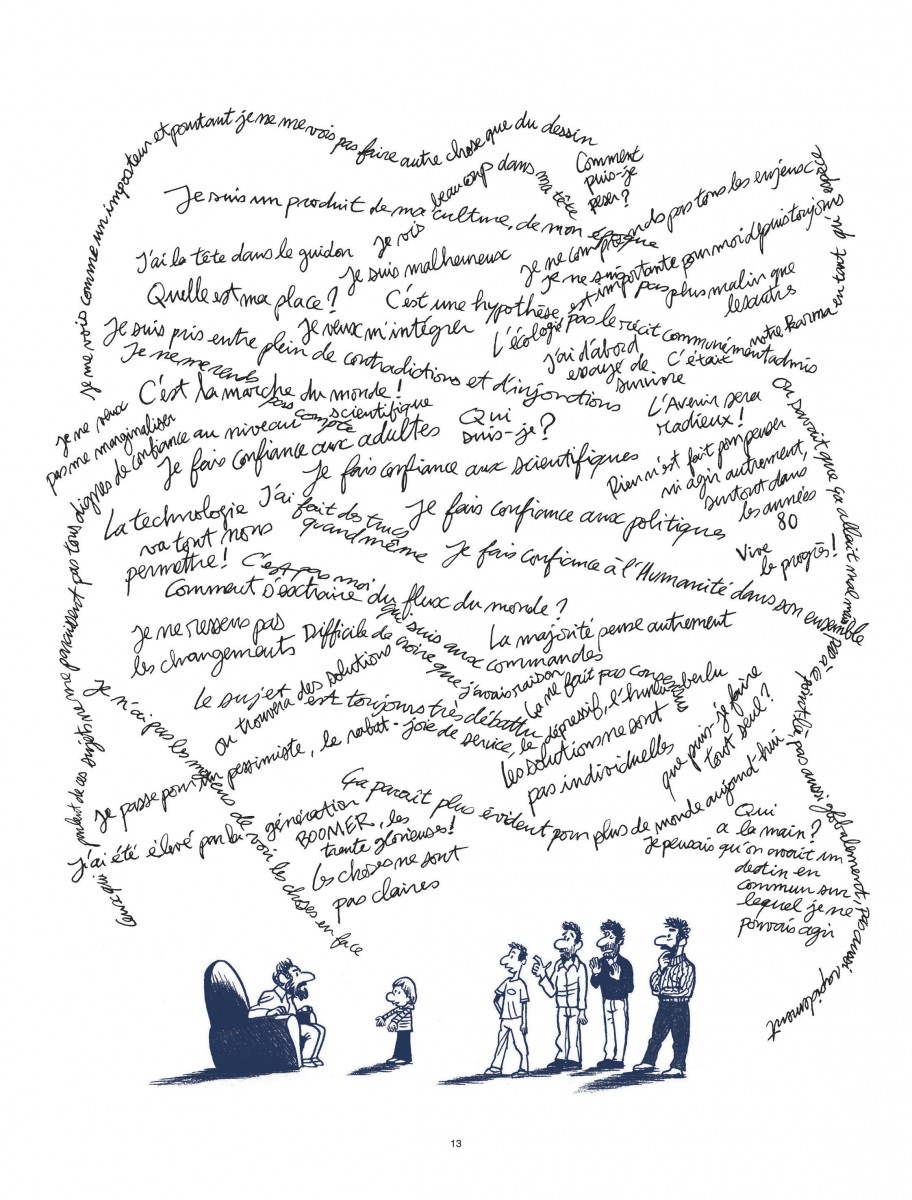 Je me vois comme un imposteur et pourtant je ne me vois pas faire autre chose que du dessin
Comment
puis-je
peser?
Je suis un produit de ma culture, de mon époque
Je vois beaucoup dans ma tête
Je ne comprends pas tous les enjeux
J'ai la tête dans le guidon
Je suis malheureux
Je ne suis pas plus malin que
les autres
Quelle est ma place?
C'est une hypothèse, pas le récit communément admis
L'écologie est importante pour moi depuis toujours
Je suis pris entre plein de contradictions et d'injonctions
Je veux m'intégrer
J'ai d'abord
essayé de
survivre
C'était notre karma en tant qu'espèce
Je ne me rends pas compte
C'est la marche du monde!
Je ne veux
pas me marginaliser
Qui
suis-je?
L'Avenir sera
radieux!
Je fais confiance aux adultes
Je fais confiance aux scientifiques
Rien n'est fait pour penser
ni agir autrement,
surtout dans
les années
80
Je fais confiance aux politiques
La technologie
va tout nous
permettre!
J'ai fait des trucs
quand même
Je fais confiance à l'Humanité dans son ensemble
Vive
le progrès!
C'est pas moi qui suis aux commandes
Comment s'extraire du flux du monde?
Je ne ressens pas
les changements
Difficile de croire que j'avais raison
La majorité pense autrement
Le sujet est toujours très débattu
On trouvera des solutions
Ça ne fait pas consensus
Je passe pour un pessimiste, le rabat-joie de service, le dépressif, l'hurluberlu
Les solutions ne sont
pas individuelles
Que puis-je faire
tout seul?
Je n'ai pas les moyens de voir les choses en face
Ça paraît plus évident pour plus de monde aujourd'hui
J'ai été élevé par la génération
BOOMER, les
trente glorieuses!
Les choses ne sont
pas claires
Qui
a la main?
Je pensais qu'on avait un
destin en
commun sur
lequel je ne
pouvais agir
Ceux qui parlent de ces sujets ne me paraissent pas tous dignes de confiance au niveau scientifique
On savait que ça allait mal mais pas à ce point-là, pas aussi globalement, pas aussi rapidement
13